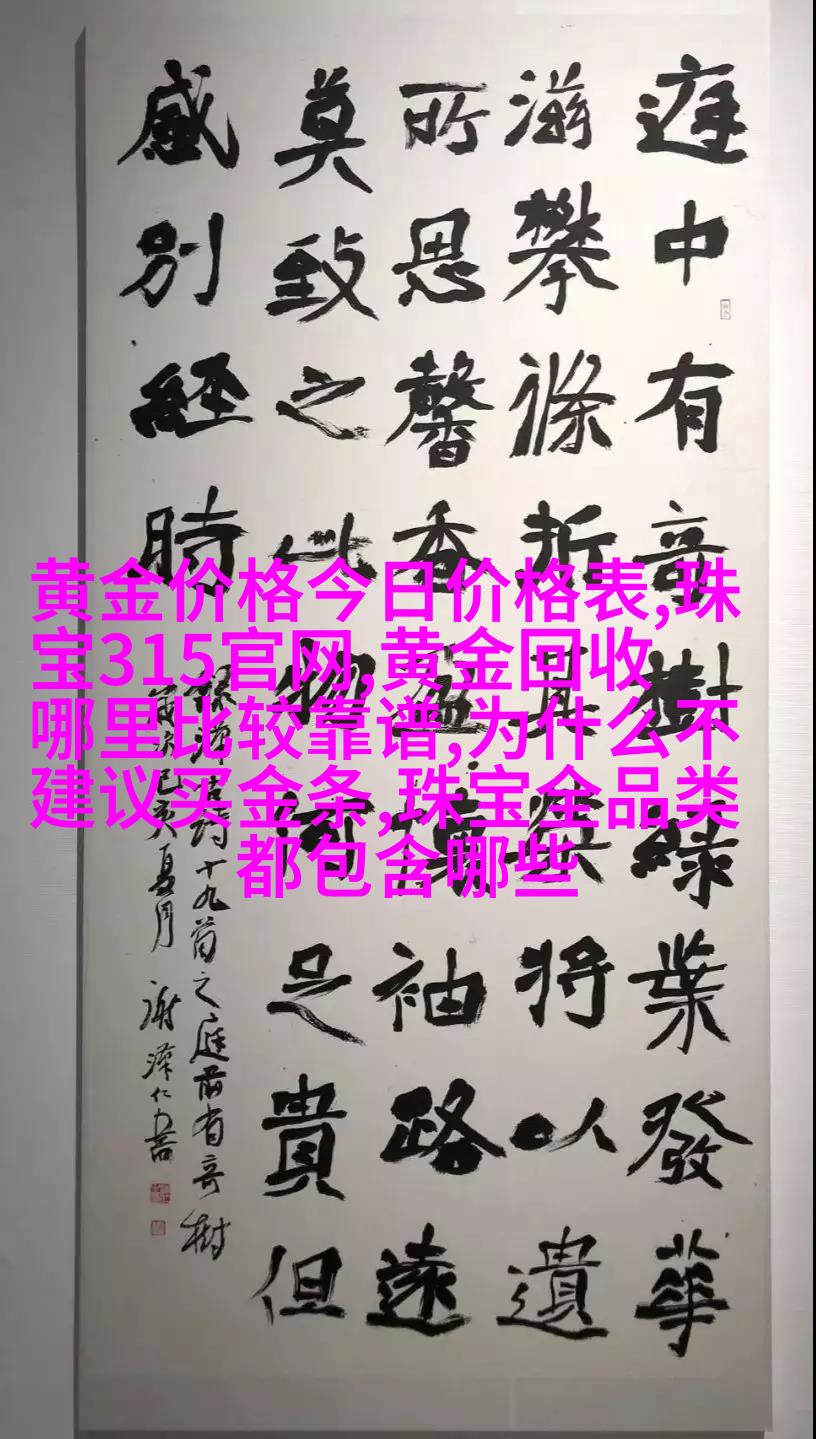 庭中有奇樹緑葉發華
滋攀條折其榮將以遺
所思馨香盈懷袖路遠
莫致之此物何足貴但
感別經時
古詩十九首之庭前有奇樹
歲次己亥夏月 謝澤仁書
黄金价格今日价格表,珠
宝315官网,黄金回收
哪里比较靠谱,为什么不
建议买金条,珠宝全品类
都包含哪些